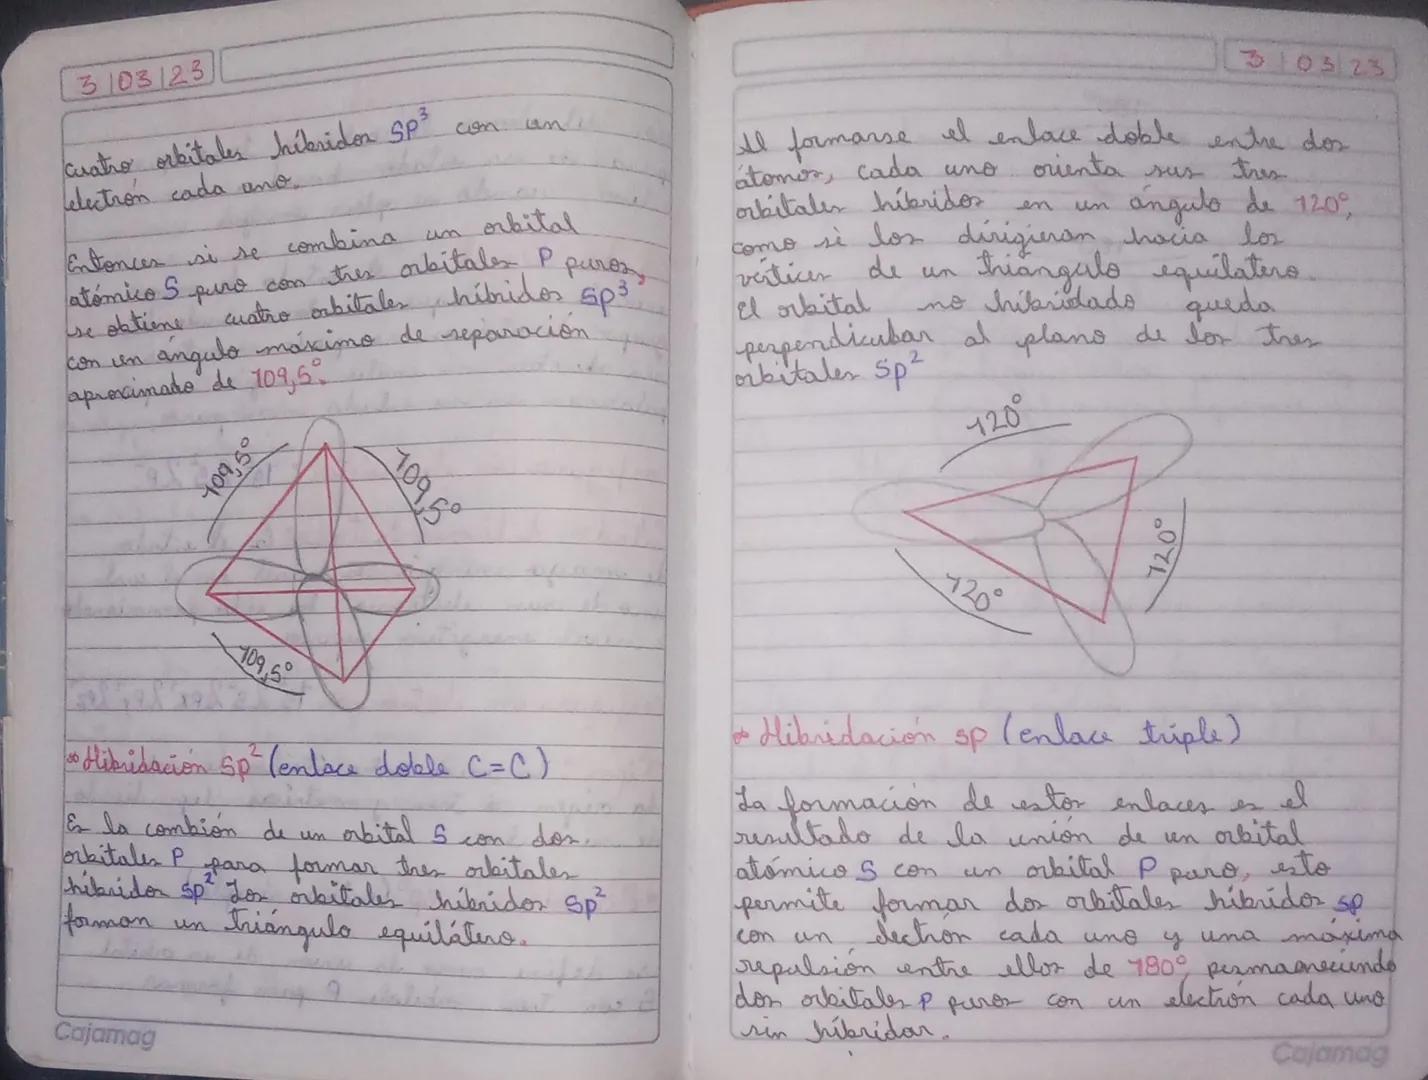 3/03/23
cuatro orbitales híbridos sp³ con un
electrón cada uno.
Entonces si se combina un orbital
atómico S puro con tres orbitales P puros,
se obtiene cuatro orbitales híbridos sp³
con un ángulo máximo de separación
aproximado de 109,5°.
109,5°
109,5°
109,5°
Hibridación sp² (enlace doble C=C)
Es la combión de un orbital S con dos
orbitales P para formar tres orbitales
híbridos sp² Los orbitales híbridos sp²
forman un triángulo equilátero.
Cajamag
3/03/23
Al formarse el enlace doble entre dos
átomos, cada uno orienta sus tres
orbitales híbridos en un ángulo de 120°,
como si los dirigieran hacia los
vértices de un triángulo equilatero.
El orbital no hibridado queda
perpendicular al plano de los tres
orbitales sp²
120°
120°
120°
Hibridación sp (enlace triple)
La formación de estos enlaces es el
resultado de la unión de un orbital
atómico S con un orbital P puro, esto
permite formar dos orbitales híbridos sp
con un electrón cada uno y una máxima
repulsión entre ellos de 180°, permaneciendo
dos orbitales P puros con un electrón cada uno
sin híbridar.
Cajamag